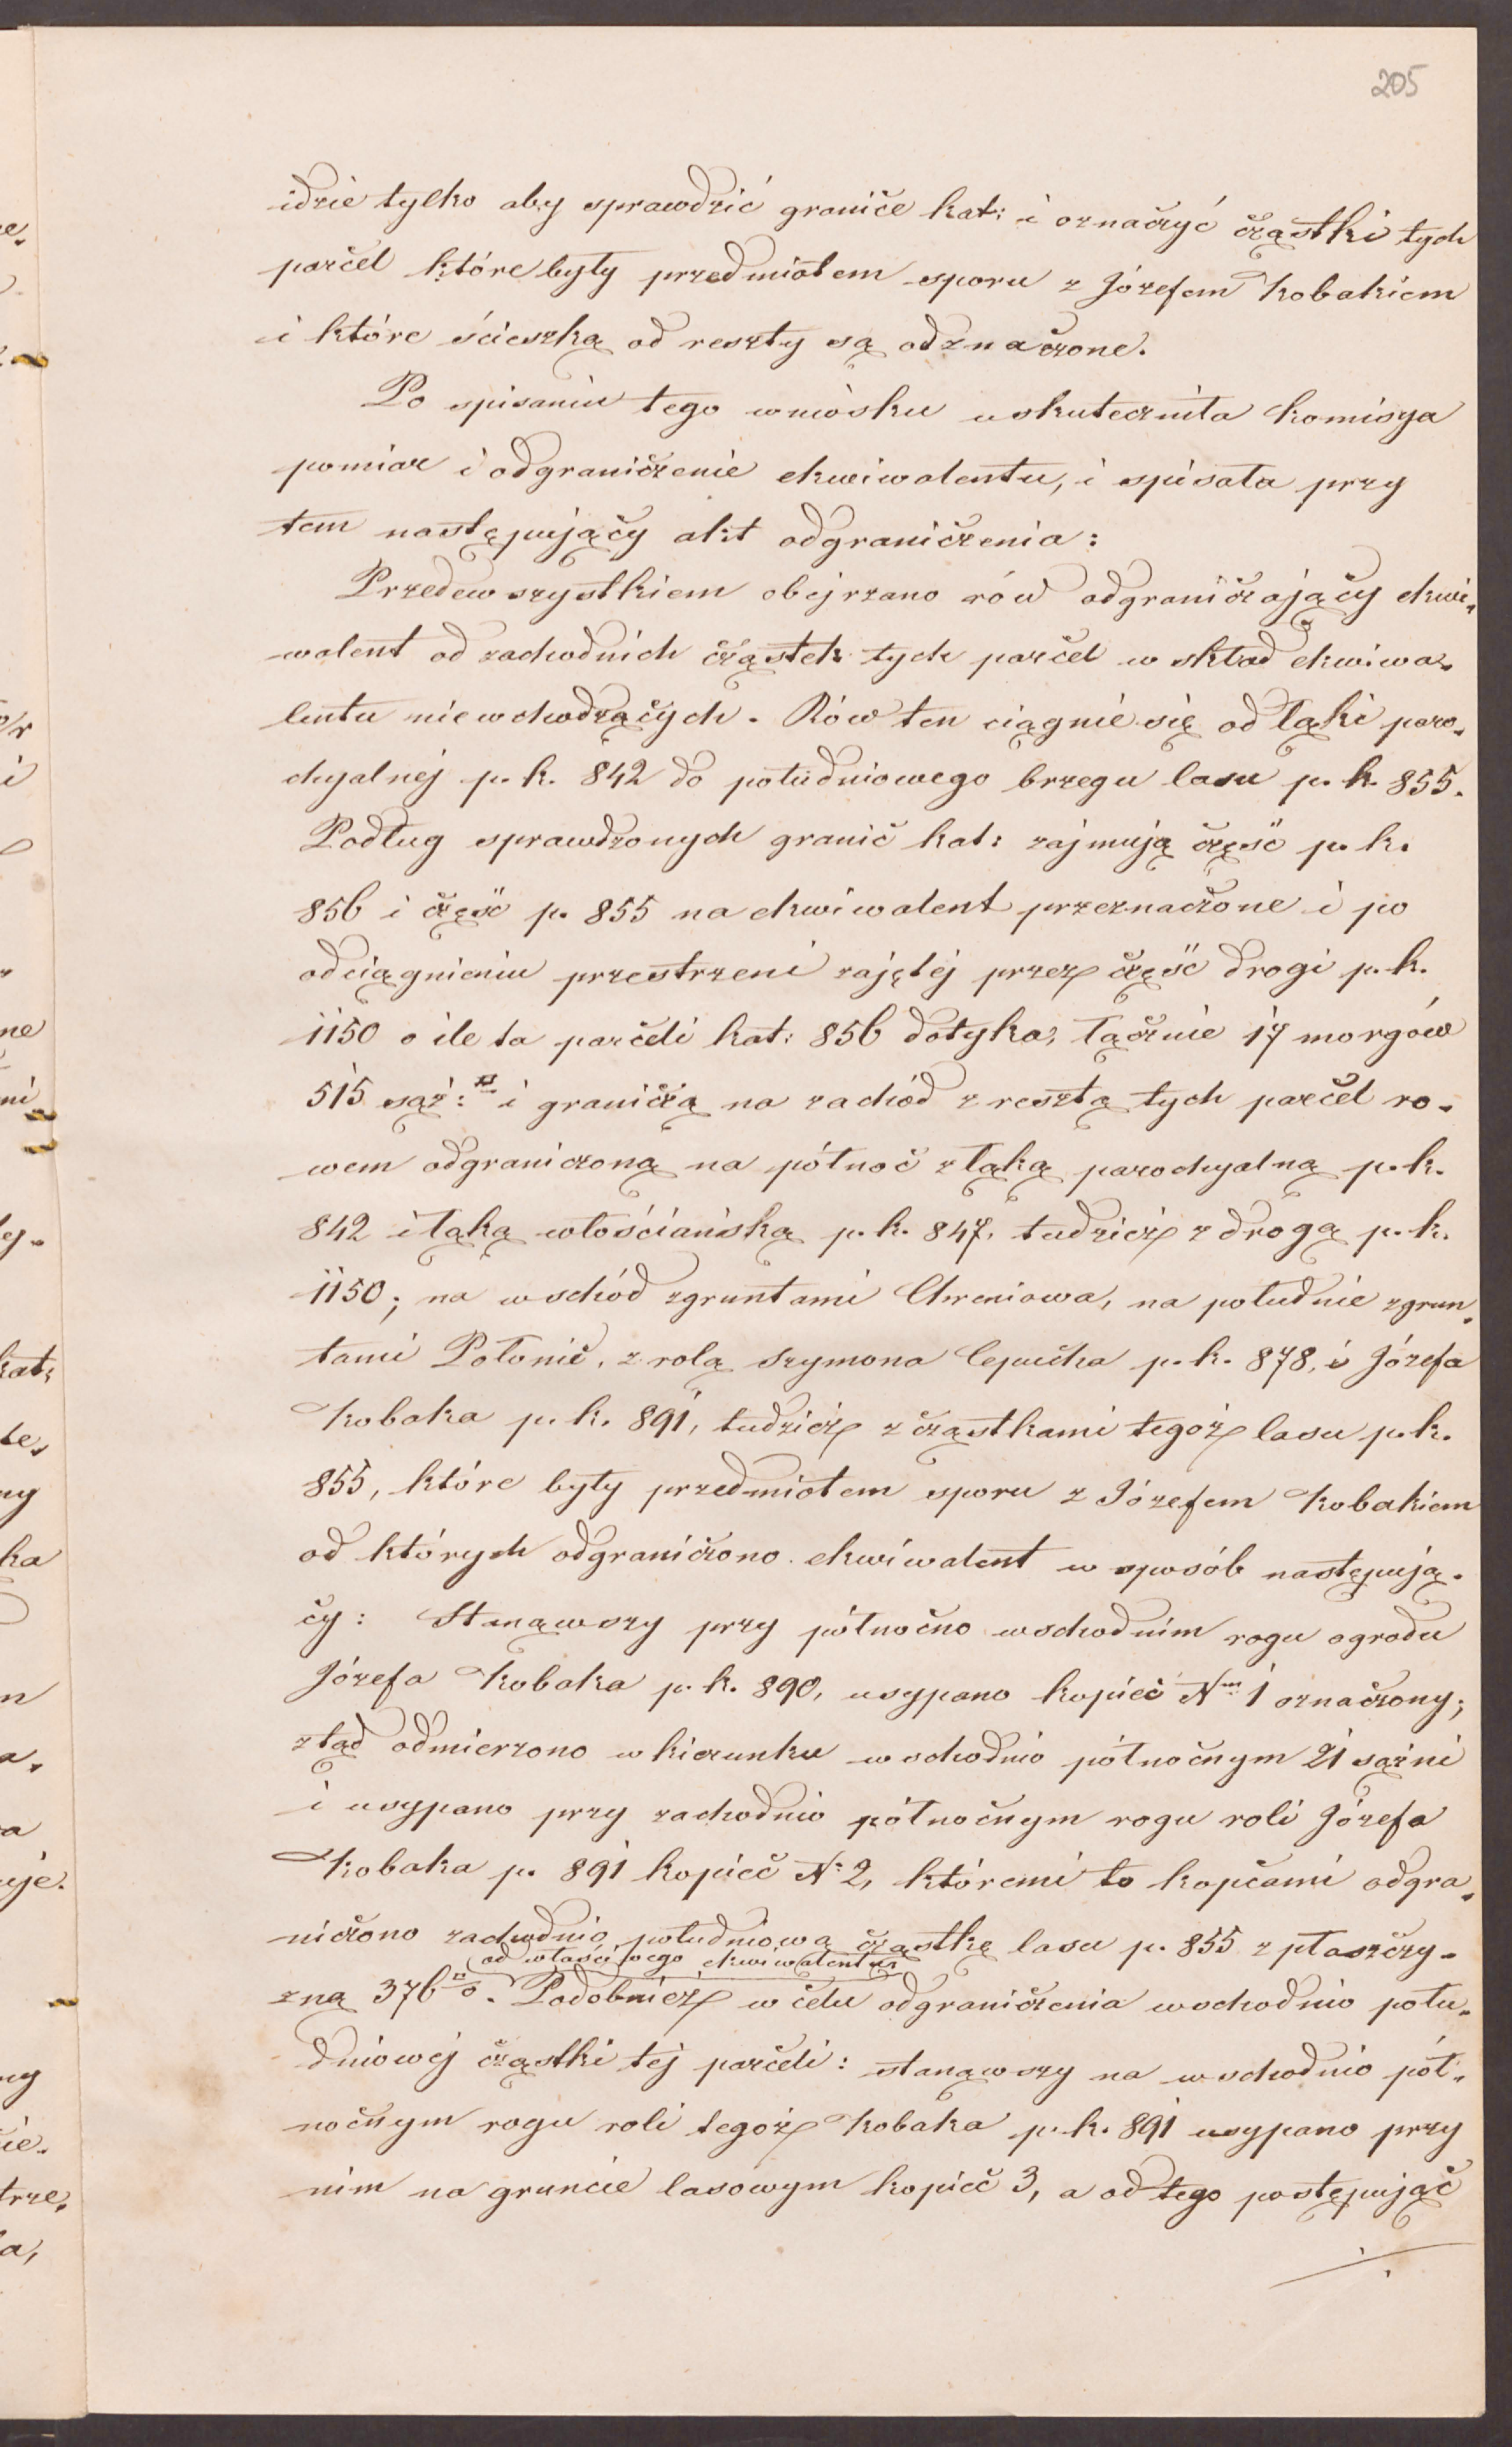 205
idzie tylko aby sprawdzić granice kat: i oznaczyć cząstki tych
parcel które były przedmiotem sporu z Józefem Kobakiem
i które ścieszką od reszty są odznaczone.
Po spisaniu tego wniosku uskuteczniła komisya
pomiar i odgraniczenie ekwiwalentu, i spisała przy
tem następujący akt odgraniczenia:
Przedewszystkiem obejrzano rów odgraniczający ekwi-
walent od zachodnich cząstek tych parcel w skład ekwiwa-
lentu niewchodzących. Rów ten ciągnie się od łąki paro-
chyalnej p. k. 842 do południowego brzegu lasu p. k. 855.
Podług sprawdzonych granic kat: zajmują część p. k.
856 i część p. 855 na ekwiwalent przeznaczone i po
odciągnieniu przestrzeni zajętej przez część drogi p. k.
1150 o ile ta parceli kat: 856 dotyka, łącznie 17 morgów
515 sąż: □ i graniczą na zachód z resztą tych parcel ro-
wem odgraniczoną na północ z łąką parochyalną p. k.
842 i łąką włościańską p. k. 847, tudzież z drogą p. k.
1150; na wschód z gruntami Chreniowa, na południe z grun-
tami Połonic, z rolą Szymona Cepucha p. k. 878, i Józefa
Kobaka p. k. 891, tudzież z cząstkami tegoż lasu p. k.
855, które były przedmiotem sporu z Józefem Kobakiem
od których odgraniczono ekwiwalent w sposób następują-
cy: Stanąwszy przy północno wschodnim rogu ogrodu
Józefa Kobaka p. k. 890, usypano kopiec Nm 1 oznaczony;
ztąd odmierzono w kierunku wschodnio północnym 21 sążni
i usypano przy zachodnio północnym rogu roli Józefa
Kobaka p. 891 kopiec N: 2, któremi to kopcami odgra-
niczono zachodnio południową cząstkę lasu p. 855 z płaszczy-
od właściwego ekwiwalentu
zną 376 □°. Podobnież w celu odgraniczenia wschodnio połu-
dniowej cząstki tej parceli: stanąwszy na wschodnio pół-
nocnym rogu roli tegoż Kobaka p. k. 891 usypano przy
nim na gruncie lasowym kopiec 3, a od tego postępując